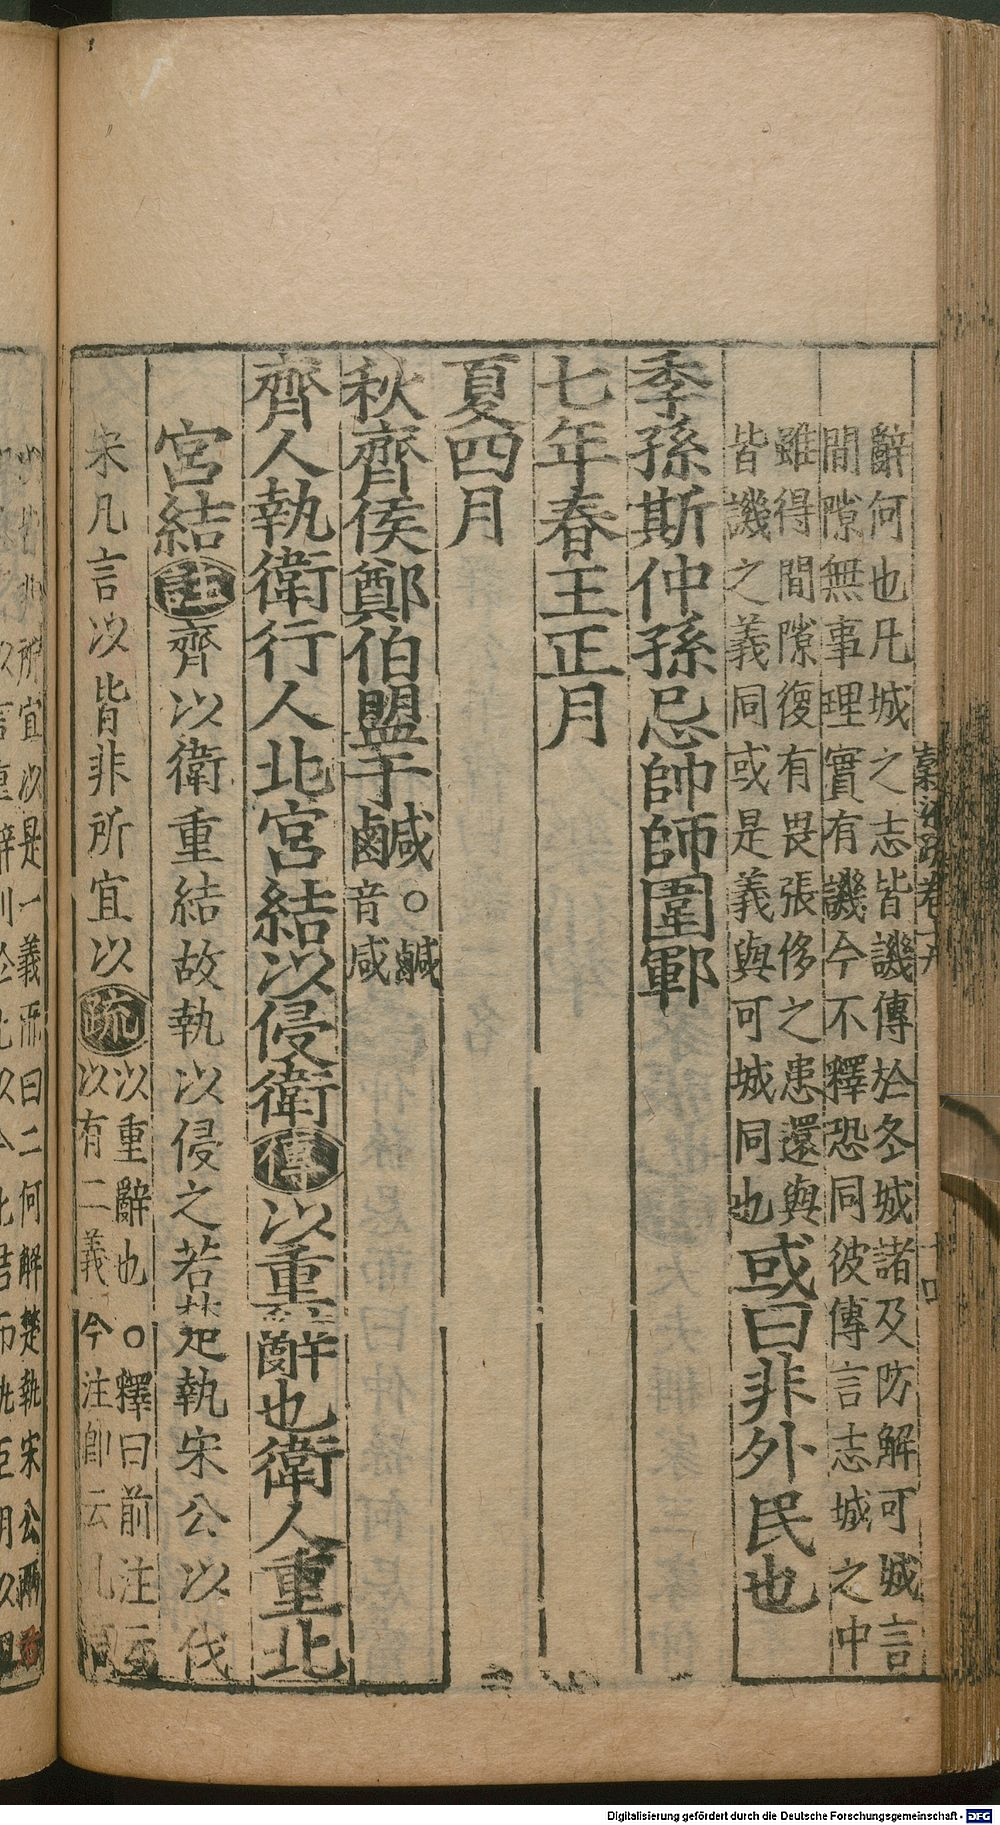 辭何也凡城之志皆譏傳於冬城諸及防解可城言
間隙無事理實有譏今不釋恐同彼傳言志城之中
雖得間隙復有畏張侈之患還與
皆譏之義同或是義與可城同也或曰非外民也
季孫斯仲孫忌帥師圍鄆
七年春王正月
夏四月
秋齊侯鄭伯盟于鹹○鹹音咸
齊人執衛行人北宮結以侵衛傳以重辭也衛人重北
宮結註齊以衛重結故執以侵之若楚執宋公以伐
宋凡言以皆非所宜以疏以重辭也○釋曰前注云
以有二義今注卽云凡言
所宜以是一義而曰二何解楚執宋公
Digitalisierung gefördert durch die Deutsche Forschungsgemeinschaft - DFG